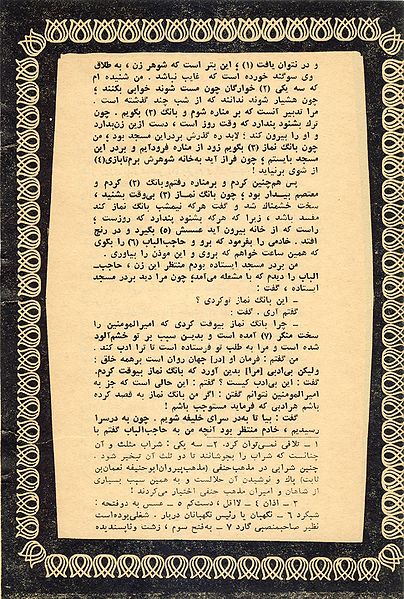 و در نتوان یافت (۱) ؛ این بتر است که شوهر زن ، به طلاق
وی سوگند خورده است که غایب نباشد . من شنیده ام
که سه یکی (۲) خوارگان چون مست شوند خوابی بکنند ؛
چون هشیار شوند ندانند که از شب چند گذشته است .
مرا تدبیر آنست که بر مناره شوم و بانگ (۳) بگویم . چون
ترك بشنود پندارد که وقت روز است ، دست ازین زن بدارد
و او را بیرون کند ؛ لابد ره گذرش بر در این مسجد بود ؛ من
چون بانگ نماز (۳) بگویم زود از مناره فرودآیم و بر در این
مسجد بایستم ؛ چون فراز آید به خانه شوهرش برم تا باری (۴)
از شوی برنیاید !
پس هم چنین کردم و بر مناره رفتم و بانگ (۳) کردم و
معتصم بیدار بود ؛ چون بانگ نماز (۳) بی وقت بشنید ،
سخت خشمناك شد و گفت هر که نیمشب بانگ نماز کند
مفسد باشد ، زیرا که هر که بشنود پندارد که روزست ؛
راست که از خانه بیرون آید عسسش (۵) بگیرد و در رنج
افتد . خادمی را بفرمود که برو و حاجب الباب (۶) را بگوی
که همین ساعت خواهم که بروی و این موذن را بیاوری .
من بر در مسجد ایستاده بودم منتظر این زن ، حاجب
الباب را دیدم که با مشعله می آمد، چون مرا دید بر در مسجد
ایستاده ، گفت :
ـ این بانگ نماز تو کردی ؟
گفتم آری . گفت :
ـ چرا بانگ نماز بیوقت کردی که امیرالمومنین را
سخت منکر (۷) آمده است و بدین سبب بر تو خشم آلود
شده است و مرا به طلب تو فرستاده است تا ترا ادب کند .
من گفتم : فرمان او [در] جهان روان است بر همه خلق :
ولیکن بی ادبی [مرا] بدین آورد که بانگ نماز بیوقت کردم.
گفت : این بی ادب کیست ؟ گفتم : این حالی است که جز به
امیرالمومنین نتوانم گفتن : اگر من بانگ نماز به قصد کرده
باشم هر ادبی که فرماید مستوجب باشم !
گفت : بیا تا به در سرای خلیفه شویم . چون به در سرا
رسیدیم ، خادم منتظر بود آنچه من به حاجب الباب گفتم با
۱ ـ تلافی نمی توان کرد. ۲ ـ سه یکی : شراب مثلث و آن
چنانست که شراب را بجوشانند تا دو ثلث آن تبخیر شود .
چنین شرابی در مذهب حنفی (مذهب پیروان ابوحنیفه نعمان بن
ثابت) پاك و نوشیدن آن حلالست و به همین سبب بسیاری
از شاهان و امیران مذهب حنفی اختیار می کردند !
۳ ـ اذان ۴ ـ لااقل ، دست کم ۵ ـ عسس به دو فتحه :
شبگرد ۶ ـ نگهبان یا رئیس نگهبانان دربار ، شغلی بوده است
نظیر صاحبمنصبی گارد ۷ ـ به فتح سوم ، زشت و ناپسندیده